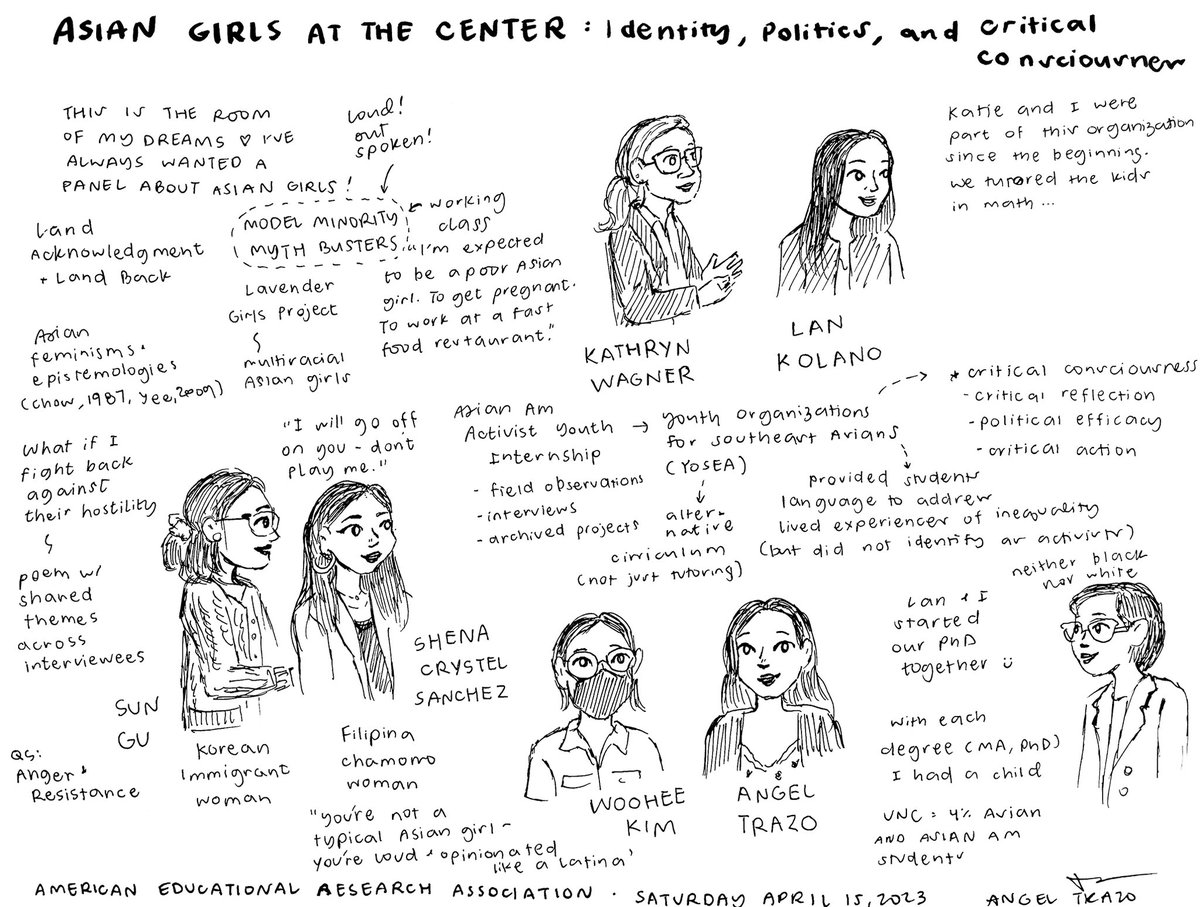 ASIAN GIRLS AT THE CENTER: Identity, Politics, and critical
consciousness
THIS IS THE ROOM
OF MY DREAMS ♡ I'VE
ALWAYS WANTED A
PANEL ABOUT ASIAN GIRLS!
Loud!
out
spoken!
Land
Acknowledgment
+ Land Back
MODEL MINORITY
MYTH BUSTERS
working
class
Lavender
Girls Project
multiracial
Asian girls
"I'm expected
to be a poor Asian
girl. To get pregnant.
To work at a fast
food restaurant."
Asian
feminisms +
epistemologies
(Chow, 1987, Yee, 2009)
KATHRYN
WAGNER
LAN
KOLANO
Katie and I were
part of this organization
since the beginning.
We tutored the kids
in math...
What if I
fight back
against
their hostility
poem w/
shared
themes
across
interviewees
"I will go off
on you - don't
play me."
Asian Am
Activist Youth
Internship
- field observations
- interviews
- archived projects
→ Youth organizations
for southeast Asians
(YOSEA)
alter-
native
cirriculum
(not just tutoring)
* critical consciousness
- critical reflection
- political efficacy
- critical action
provided students
language to address
lived experiences of inequality
(but did not identify as activists)
neither black
nor white
SUN
GU
Korean
Immigrant
woman
SHENA
CRYSTEL
SANCHEZ
Filipina
chamorro
woman
"you're not a
typical Asian girl -
you're loud + opinionated
like a Latina'
QS:
Anger +
Resistance
WOOHEE
KIM
ANGEL
TRAZO
Lan + I
started
our PhD
together
With each
degree (MA, PhD)
I had a child
UNC: 4% Asian
AND ASIAN AM
students
AMERICAN EDUCATIONAL RESEARCH ASSOCIATION · SATURDAY APRIL 15, 2023
ANGEL TRAZO